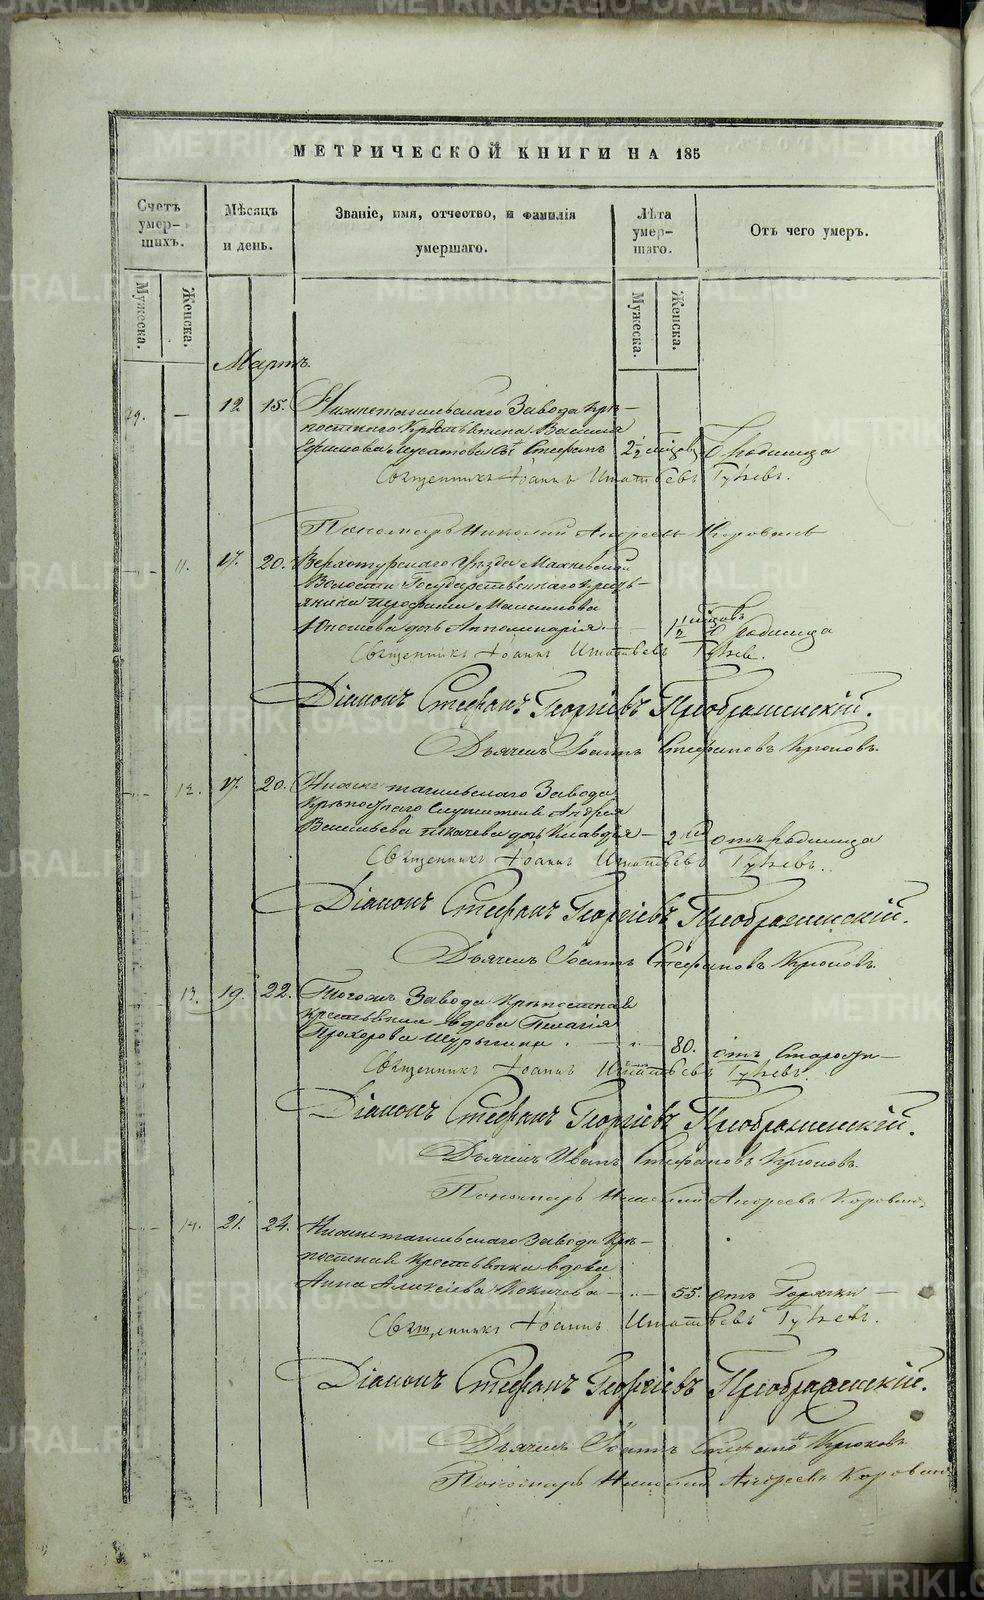 METRIKI.GASO-URAL.RU
МЕТРИЧЕСКОЙ КНИГИ НА 185
Счетъ умерших.
Мѣсяцъ и день.
Званіе, имя, отчество, и фамилія умершаго.
Лѣта умершаго.
Отъ чего умеръ.
Мужеска.
Женска.
Мужеска.
Женска.
Мартъ.
— 12 15. Нижнетагильскаго Завода Крѣ-
постнаго Крестьянина Василія
Ефимова сынъ Стефанъ 2 1/2 родимца
Священникъ Іоаннъ Игнатьевъ
Пономарь Николай Андреевъ Коровинъ
11. 17. 20. Верхотурскаго Уѣзда
Волости Государственнаго Кресть-
янина
дочь Апполинарія 1 1/2 родимца
Священникъ Іоаннъ Игнатьевъ
Діаконъ Стефанъ Георгіевъ Преображенскій.
Дьячекъ Іоаннъ Стефановъ Крюковъ.
12. 17. 20. Нижнетагильскаго Завода
Крѣпостнаго Служителя Андрея
Васильева дочь Клавдія — 2 отъ родимца
Священникъ Іоаннъ Игнатьевъ
Діаконъ Стефанъ Георгіевъ Преображенскій.
Дьячекъ Іоаннъ Стефановъ Крюковъ.
13. 19. 22. Тогожъ Завода Крѣпостная
Крестьянка вдова Пелагія
Прохорова 80. отъ Старости —
Священникъ Іоаннъ Игнатьевъ
Діаконъ Стефанъ Георгіевъ Преображенскій.
Дьячекъ Иванъ Стефановъ Крюковъ.
Пономарь Николай Андреевъ Коровинъ
14. 21. 24. Нижнетагильскаго Завода Крѣ-
постная Крестьянка вдова
Анна Алексіева — 55. отъ Горячки —
Священникъ Іоаннъ Игнатьевъ
Діаконъ Стефанъ Георгіевъ Преображенскій.
Дьячекъ Іоаннъ Крюковъ
Пономарь Николай Андреевъ Коровинъ